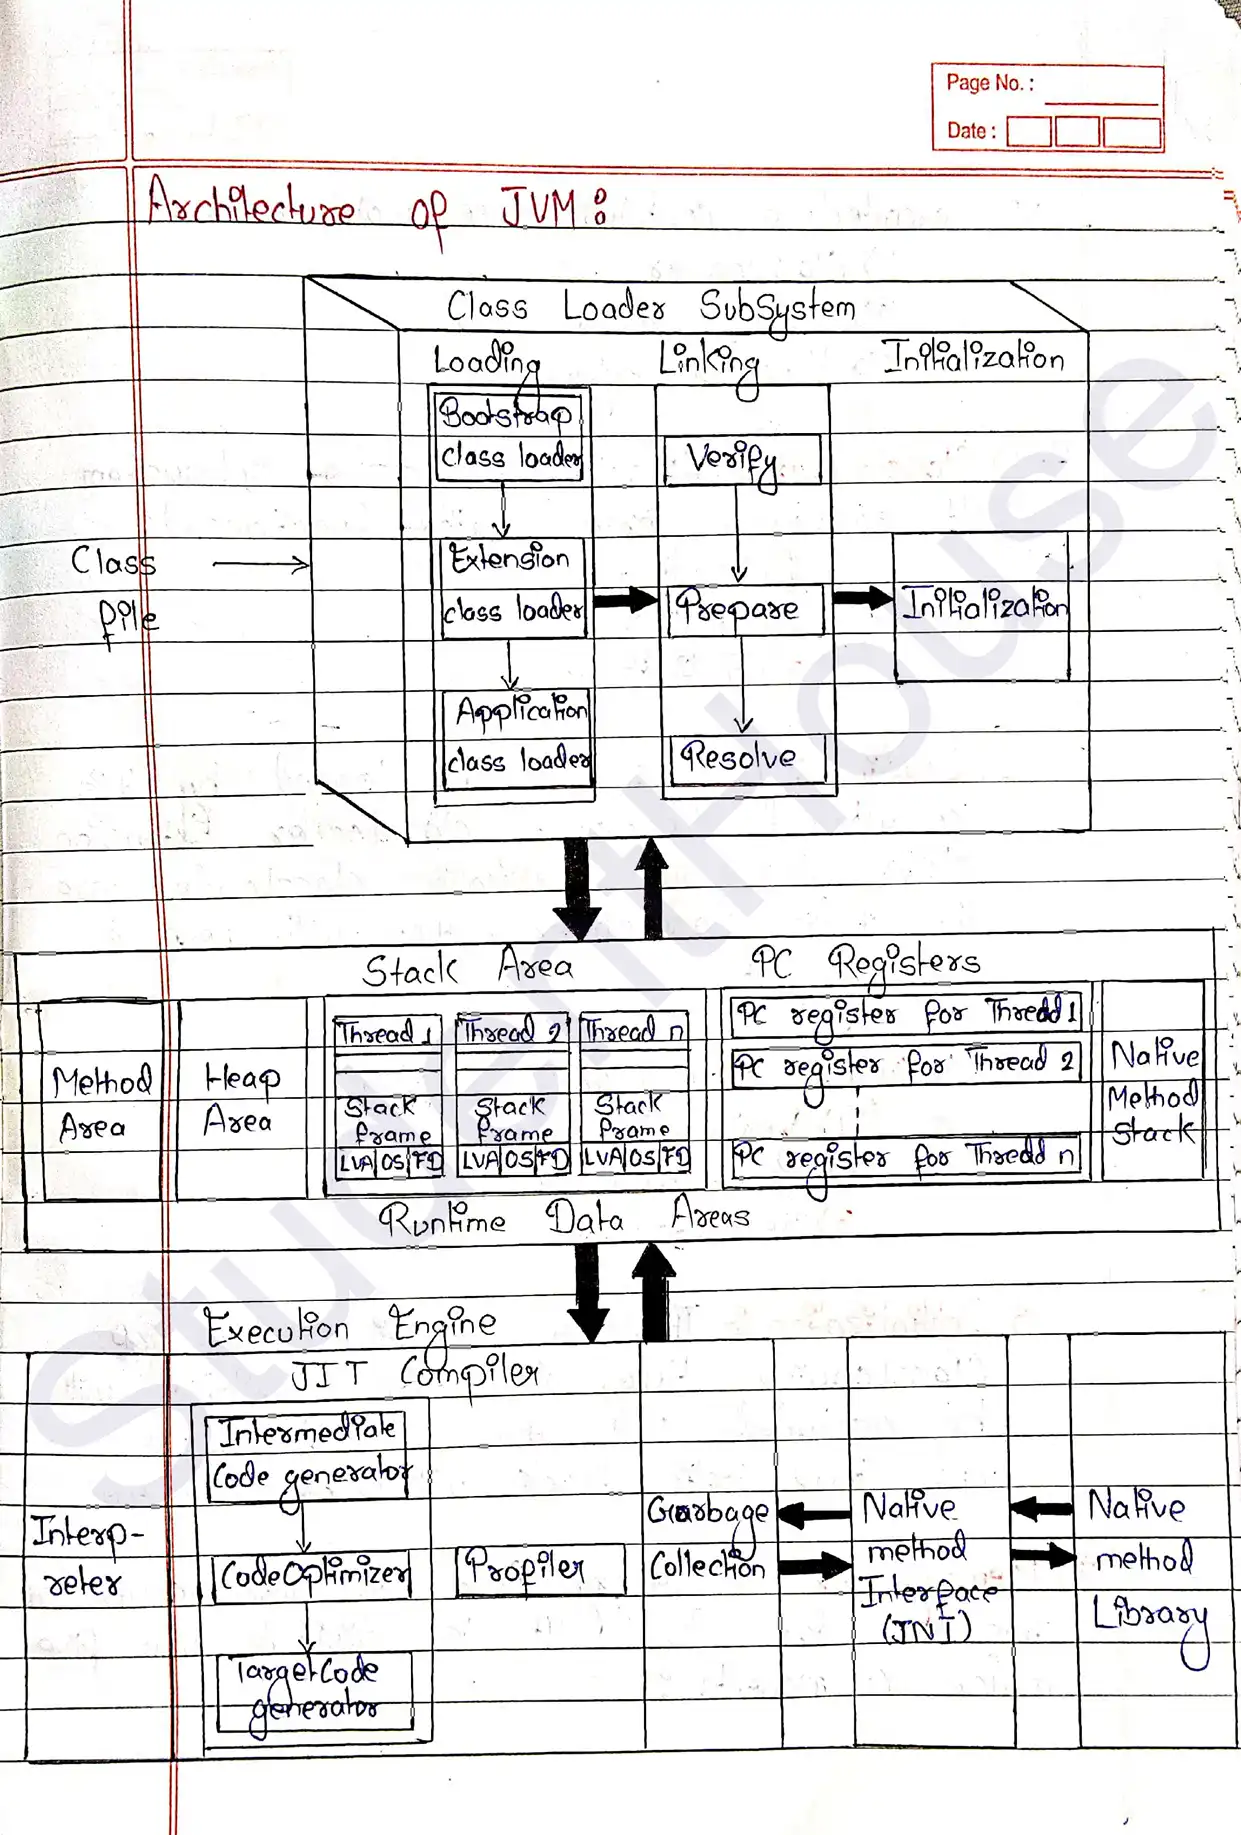 Page No. :
Date :
Architecture of JVM:
Class Loader SubSystem
Loading
Linking
Initialization
Bootstrap
class loader
Verify
Class
file
Extension
class loader
Prepare
Initialization
Application
class loader
Resolve
Stack Area
PC Registers
Method
Area
Heap
Area
Thread 1
Thread 2
Thread n
Stack
frame
LVA OS FD
Stack
frame
LVA OS FD
Stack
frame
LVA OS FD
PC register for Thread 1
PC register for Thread 2
PC register for Thread n
Native
Method
Stack
Runtime Data Areas
Execution Engine
JIT Compiler
Interp-
reter
Intermediate
Code generator
Code Optimizer
Target Code
generator
Profiler
Garbage
Collection
Native
method
Interface
(JNI)
Native
method
Library
StudentHouse